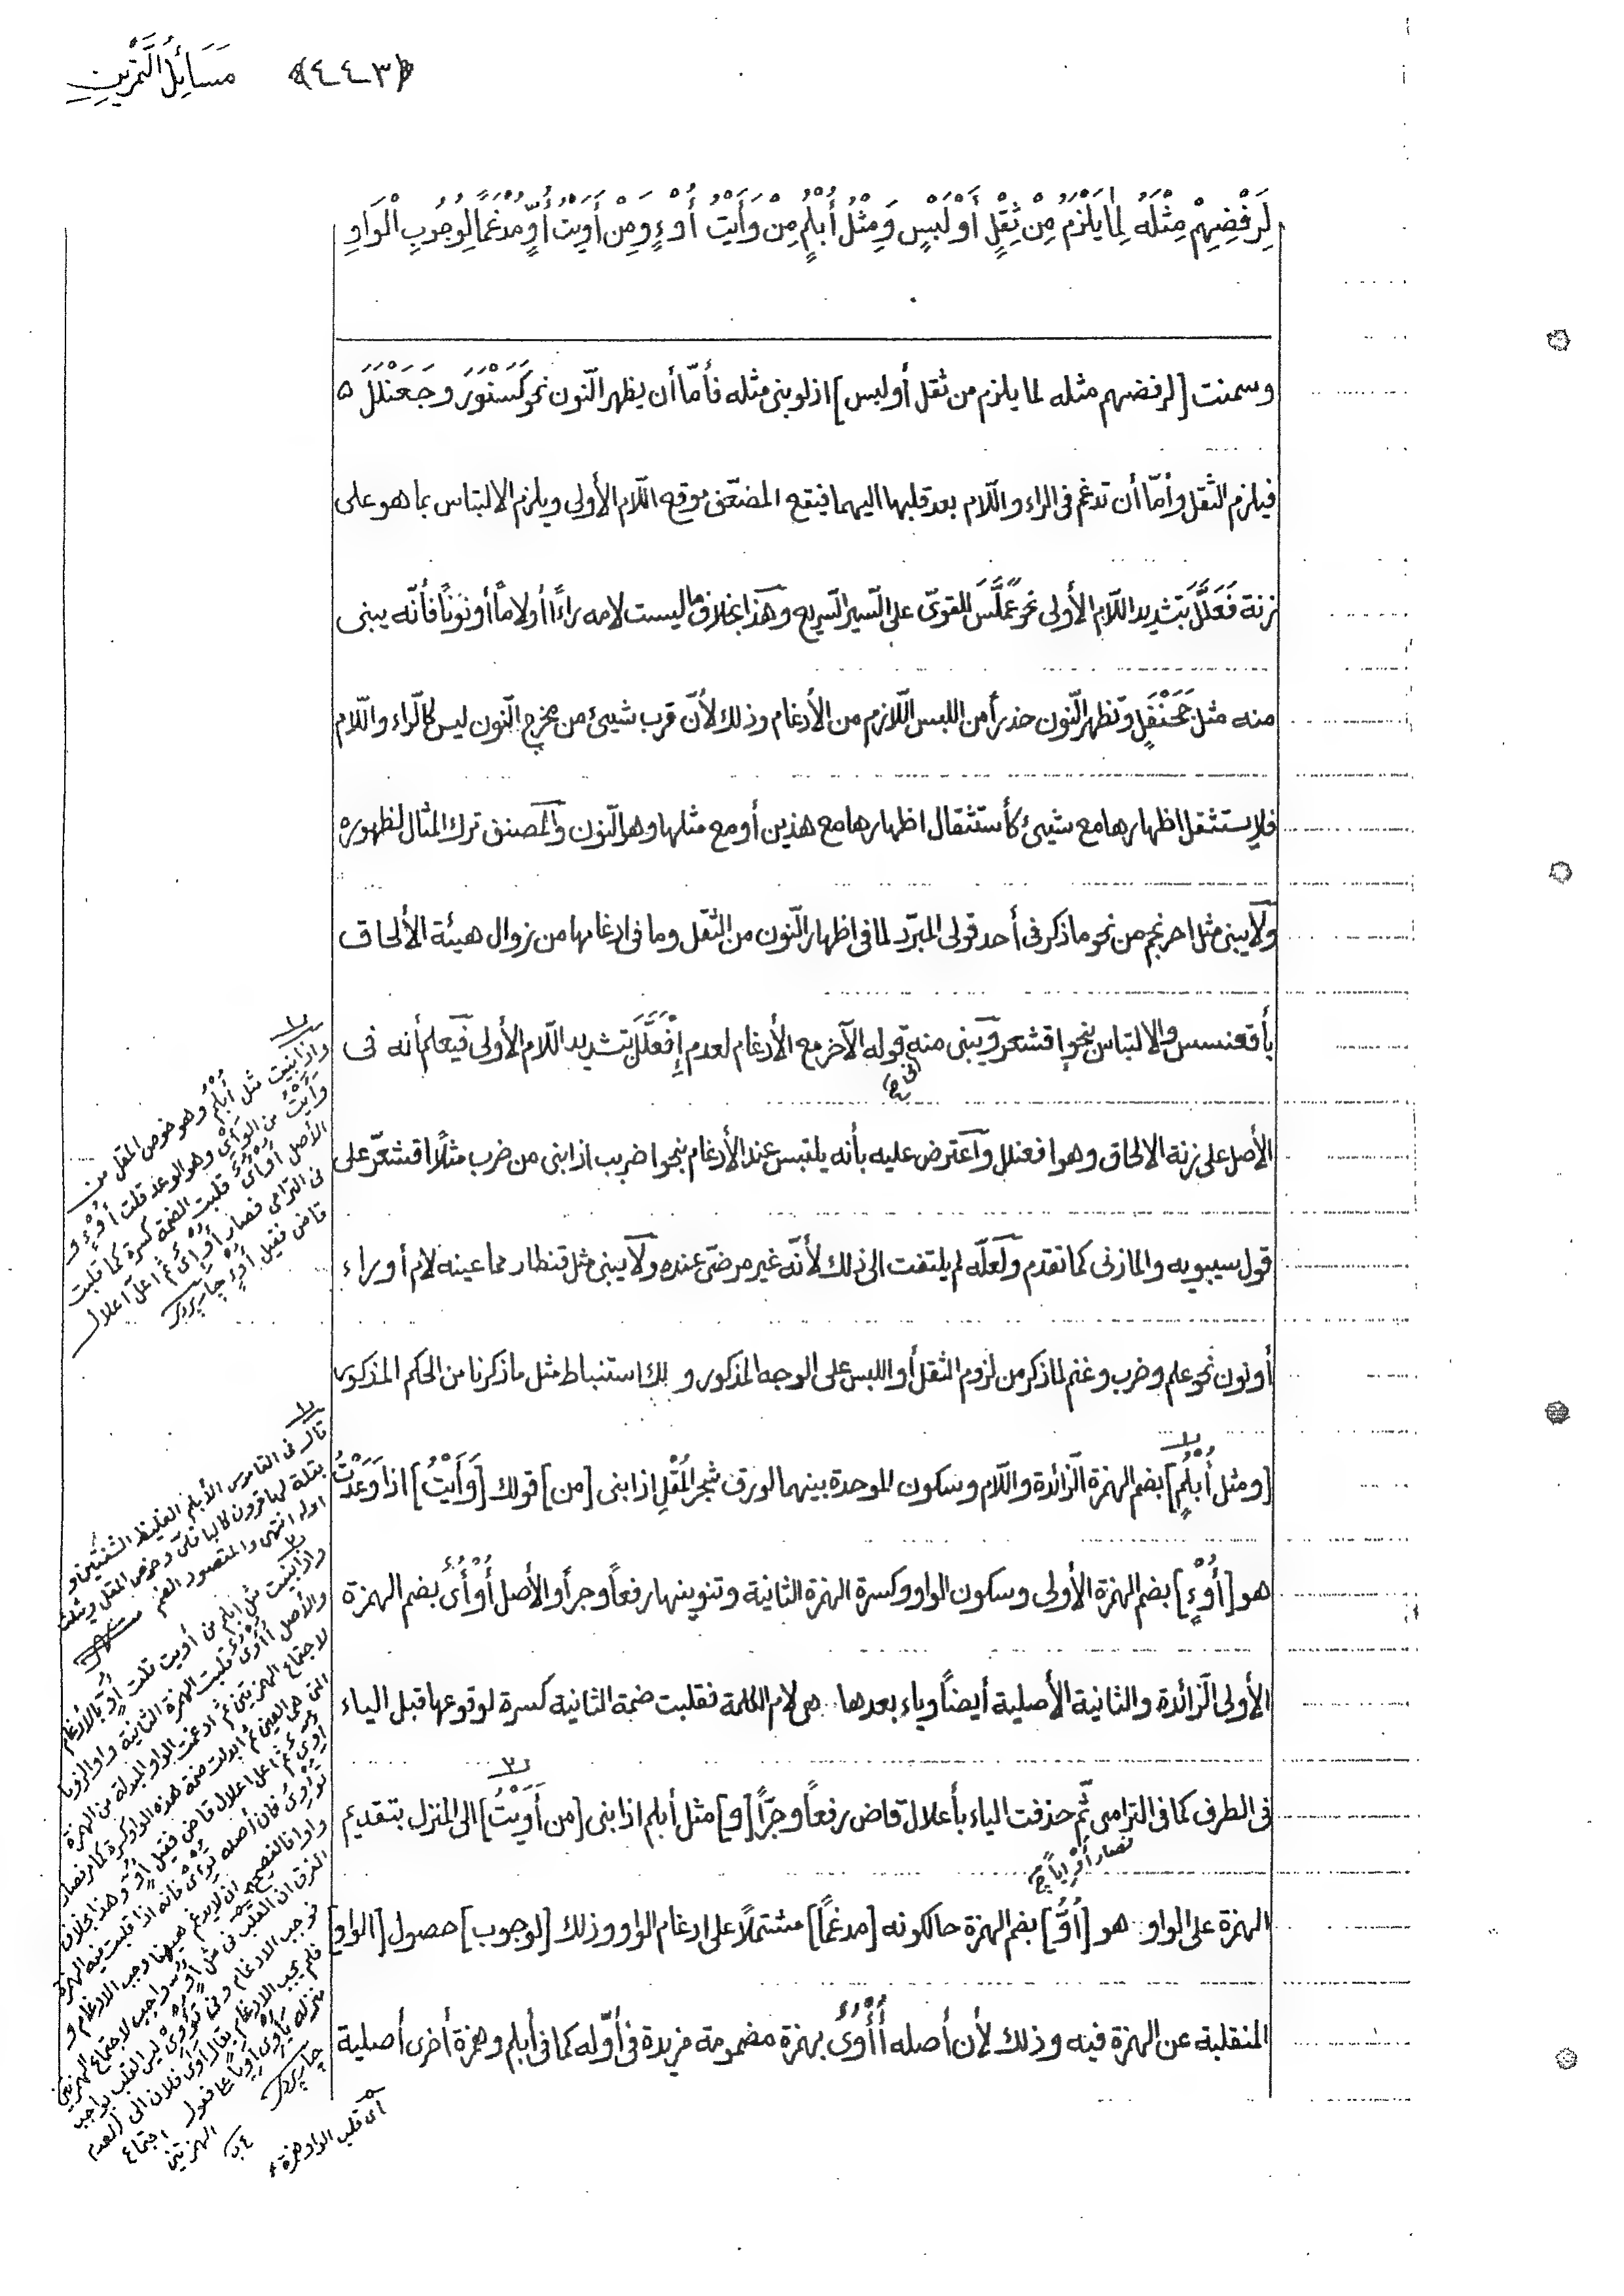 مَسَائِلُ التَّمْرِينِ ﴿٤٤٣﴾
لِرَفْضِهِمْ مِثْلَهُ لِمَا يَلْزَمُ مِنْ ثِقَلٍ أَوْ لَبْسٍ وَمِثْلُ أُبْلُمٍ مِنْ وَأَيْتُ أُوْءٍ وَمِنْ أَوَيْتُ أُوٍّ مُدْغَمًا لِوُجُوبِ الْوَاوِ
وسمنت [لرفضهم مثله لما يلزم من ثقل أو لبس] اذ لو بنى مثله فأمّا أن يظهر النّون نحو كَسَنْرَرَ وجَعَنْلَلَ
فيلزم الثّقل وأمّا أن تدغم فى الراء واللّام بعد قلبها اليهما فيقع المضعّف موقع اللّام الأولى ويلزم الالتباس بما هو على
زنة فَعَلَّلَ بتشديد اللّام الأولى نحو عَمَلَّسَ للقوىّ على السّير السّريع وهذا بخلاف ما ليست لامه راءً أو لاماً أو نوناً فأنّه يبنى
منه مثل جَحَنْفَلٍ وتظهر النّون حذراً من اللبس اللّازم من الأدغام وذلك لأنّ قرب شيئ من مخرج النّون ليس كالرّاء واللّام
فلا يستثقل اظهارها مع شيئ كأستثقال اظهارها مع هذين أو مع مثلها وهو النّون والمصنف ترك المثال لظهوره
ولا يبنى مثل احرنجم من نحو ما ذكر فى أحد قولى المبرّد لما فى اظهار النّون من الثّقل وما فى ادغامها من زوال هيئة الألحاق
بأقعنسس والالتباس بنحو اقشعر ويبنى منه قوله الآخر مع الأدغام لعدم إِفْعَلَّلَ بتشديد اللّام الأولى فيعلم أنه فى
الأصل على زنة الالحاق وهو افعنلل واعترض عليه بأنه يلتبس عند الأدغام بنحو اضربب اذا بنى من ضرب مثلاً اقشعرّ على
قول سيبويه والمازنى كما تقدم ولعلّه لم يلتفت الى ذلك لأنّه غير مرضىّ عنده ولا يبنى مثل قنطار مما عينه لام أو راء
أو نون نحو علم وضرب وغنم لما ذكر من لزوم الثقل أو اللبس على الوجه المذكور ولك استنباط مثل ما ذكرنا من الحكم المذكور
[ومثل أُبْلُمٍ] بضم الهمزة الزّائدة واللّام وسكون الموحدة بينهما لورق شجر المُقْلِ اذا بنى [من] قولك [وَأَيْتُ] اذا وَعَدْتُ
هو [أُوْءٍ] بضم الهمزة الأولى وسكون الواو وكسرة الهمزة الثانية وتنوينها رفعاً وجراً والأصل أُوْأُىٌ بضم الهمزة
الأولى الزّائدة والثانية الأصلية أيضاً وياء بعدها هى لام الكلمة فقلبت ضمة الثانية كسرة لوقوعها قبل الياء
فى الطرف كما فى الترامى ثمّ حذفت الياء بأعلال قاض رفعاً وجرّاً [و] مثل أبلم اذا بنى [من أَوَيْتُ] الى المنزل بتقديم
فصار أو اياً
الهمزة على الواو هو [أُوٍّ] بضم الهمزة حالكونه [مدغماً] مشتملاً على ادغام الواو وذلك [لوجوب] حصول [الواو]
المنقلبة عن الهمزة فيه وذلك لأن أصله أُأْوُىٌ بهمزة مضمومة مزيدة فى أوّله كما فى أبلم وهمزة أخرى أصلية
واذا بنيت مثل أُبْلُمٍ وهو خوص المقل من
وَأَيْتُ من الوأى وهو الوعد قلت أُوْءٍ و
الأصل أوأى قلبت الضمة كسرة كما قلبت
فى الترامى فصار أوءى ثم اعلّ اعلال
قاض فقيل أوءٍ چارپردى
قال فى القاموس الأبلم الغليظ الشفتين و
بقلة لها قرون كالباقلى وخوص المقل ويثلث
اوله انتهى والمقصود
واذا بنيت مثل ابلم من أويت قلت أوٍّ بالأدغام
والأصل أأوى قلبت الهمزة الثانية واوا لزوما
لاجتماع الهمزتين ثم ادغمت الواو المبدلة من الهمزة
التى هى العين ثم ابدلت ضمة هذه الواو كسرة كما مر فصار
أوّى ثم اعل اعلال قاض فقيل أوٍّ وهذا بخلاف
چارپردى
اى قلب الواو همزة